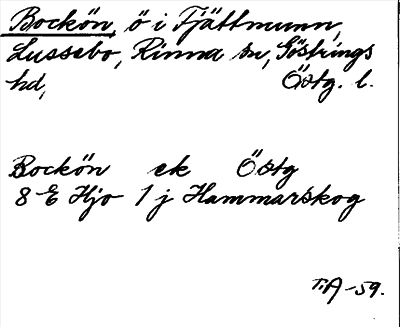 Bockön, ö i Tjättmunn,
Lussebo, Rinna sn, Göstrings
hd, Östg. l.
Bockön ek Östg
8 E Hjo 1 j Hammarskog
TA -59.